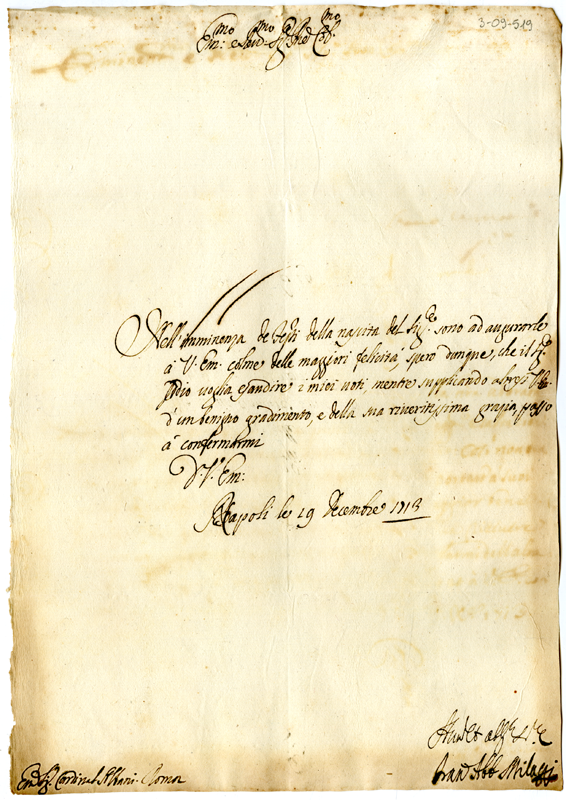 3-09-519
Em:mo e Rev:mo Sig:re Sig:re
Nell'imminenza de Festi della nascita del Sig:re sono ad augurarle
à V. Em. colme delle maggiori felicità, spero dunque, che il Sig:re
Iddio voglia esaudire i miei voti, mentre supplicando altresì V. E.
d'un benigno gradimento, e della sua riveritissima grazia, passo
à confermarmi
D. V. Em:
Napoli li 19 Decembre 1713
Em: Sig: Cardinal Albani. Roma